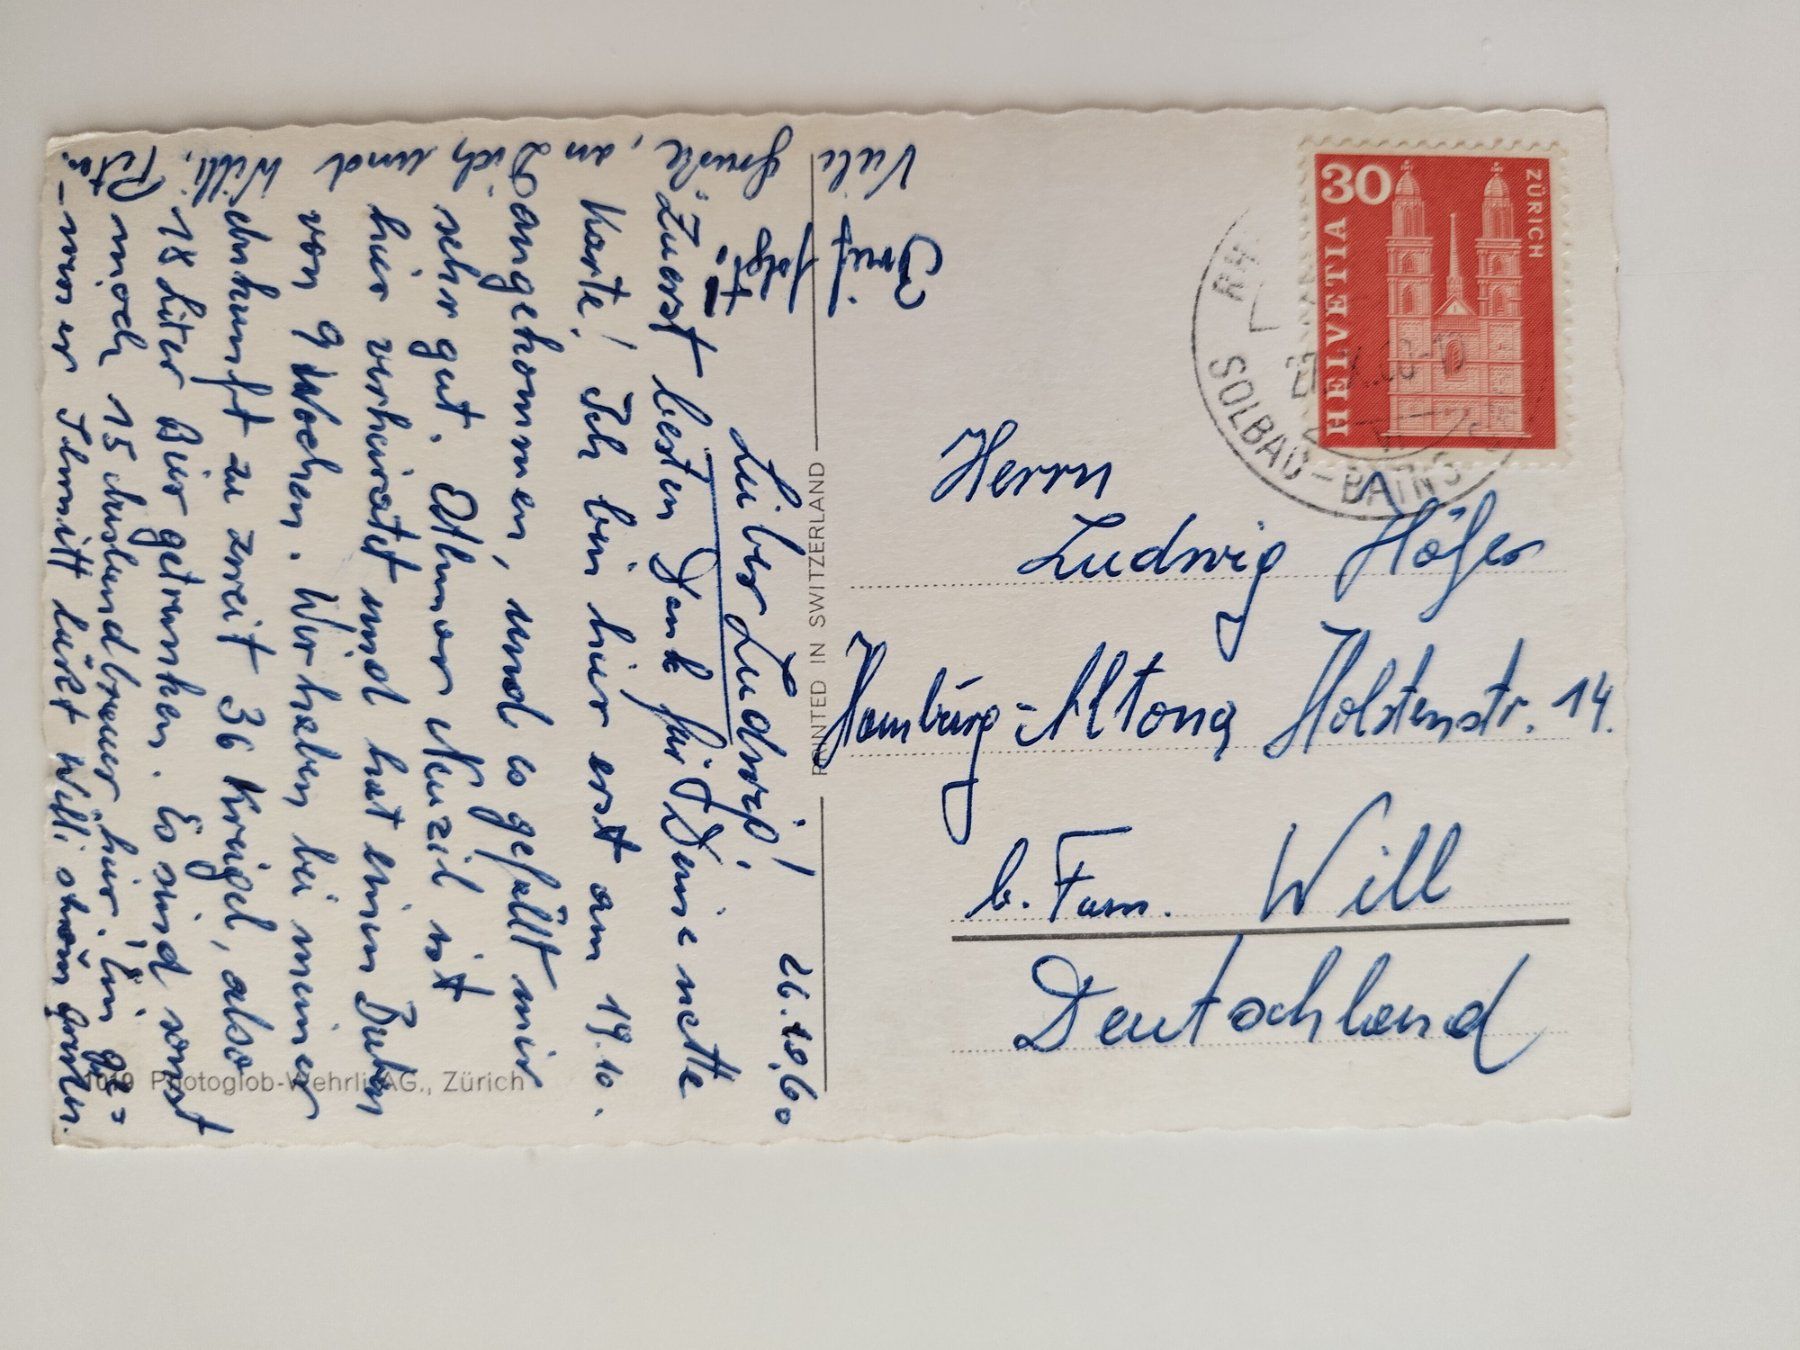 26.10.60
Lieber Ludwig!
Zuerst besten Dank für Deine nette
Karte! Ich bin hier erst am 19.10.
angekommen, und es gefällt mir
sehr gut. Othmar Neuzil ist
hier verheiratet und hat einen Buben
von 9 Wochen. Wir haben bei meiner
Ankunft zu zweit 36 Kreigel, also
18 Liter Bier getrunken. Es sind sonst
noch 15 Auslandbrauer hier. Ein ge=
-wisser Schmitt lässt Willi schön grüßen.
Viele Grüße, an Dich und Willi, Peter.
Brief folgt.
Herrn
Ludwig Höfer
Hamburg-Altona Holstenstr. 14.
b. Fam. Will
Deutschland
PRINTED IN SWITZERLAND
Photoglob-Wehrli AG., Zürich
30
HELVETIA
ZÜRICH
SOLBAD-BAINS